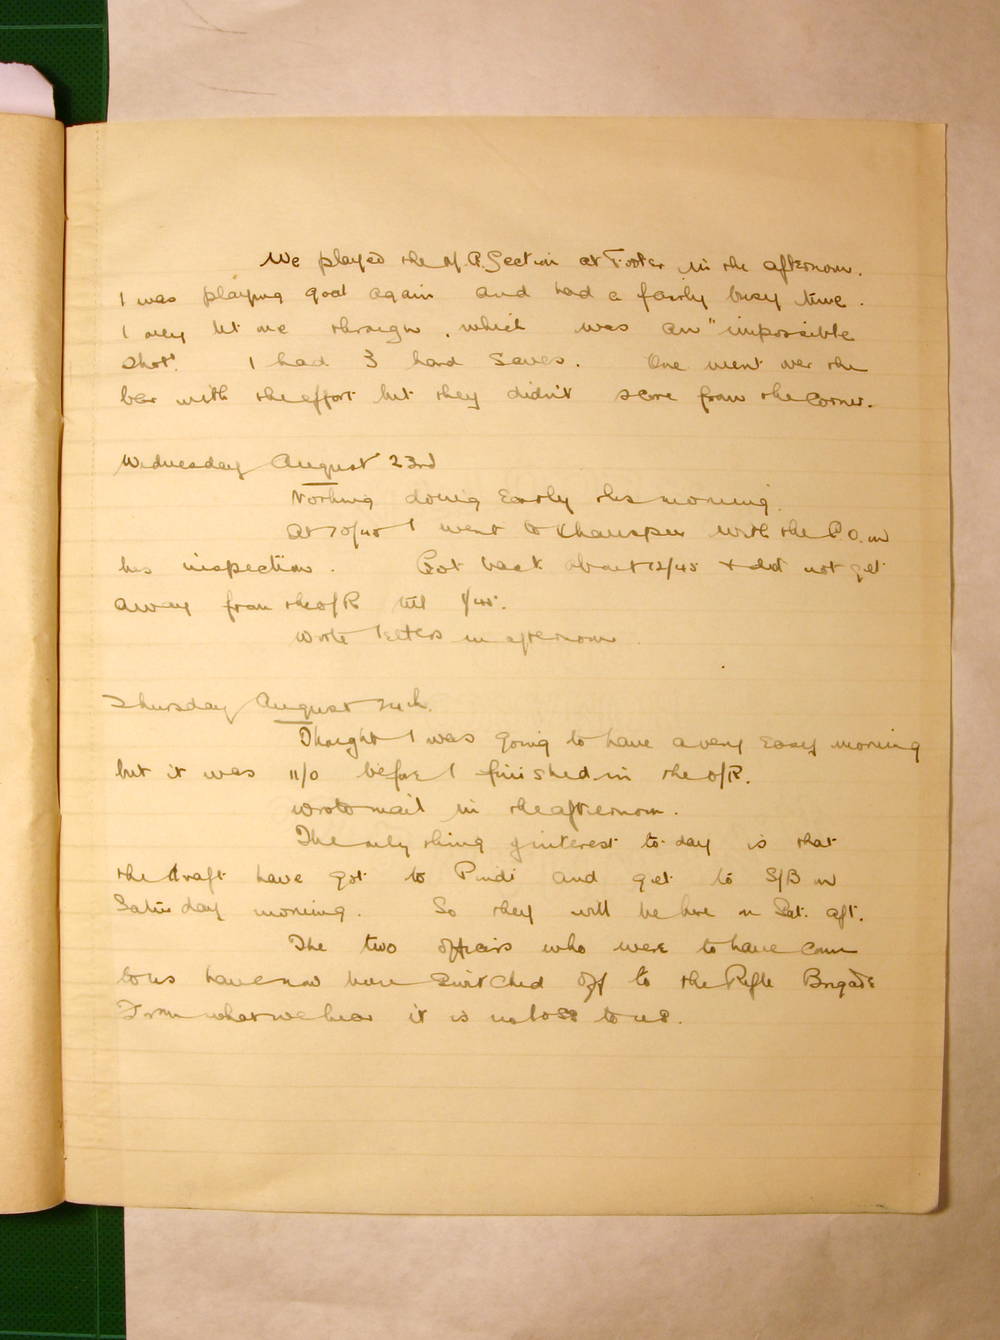 We played the M.G. Section at Footer in the afternoon.
I was playing goal again and had a fairly busy time.
I only let one through, which was an "impossible
shot". I had 3 hard saves. One went over the
bar with the effort but they didn't score from the corner.
Wednesday August 23rd
Nothing doing early this morning.
At 10/45 I went to Khanspur with the C.O. on
his inspection. Got back about 12/45 & did not get
away from the O/R till 1/45.
Wrote letters in afternoon.
Thursday August 24th.
Thought I was going to have a very easy morning
but it was 11/0 before I finished in the O/R.
Wrote mail in the afternoon.
The only thing of interest to-day is that
the draft have got to Pindi and get to S/B on
Saturday morning. So they will be here on Sat. aft.
The two officers who were to have come
to us have now been switched off to the Rifle Brigade
From what we hear it is no loss to us.